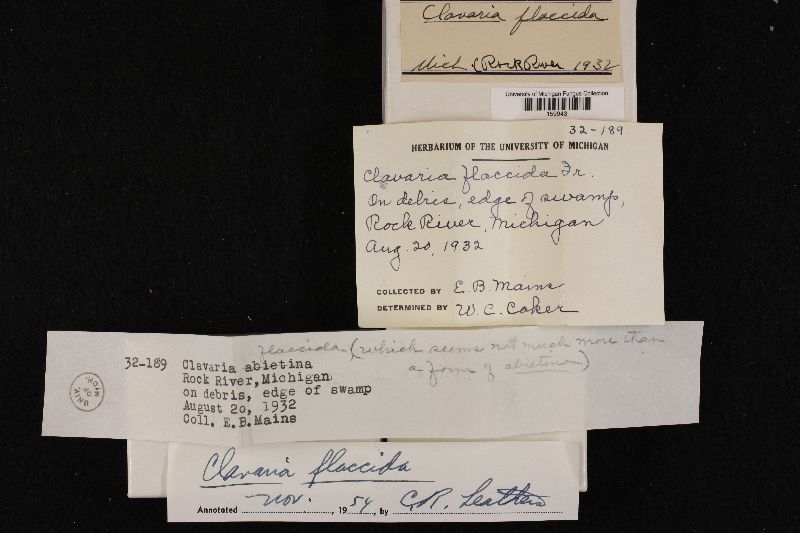 Clavaria flaccida
Mich. (Rock River 1932
University of Michigan Fungus Collection
159943
32-189
HERBARIUM OF THE UNIVERSITY OF MICHIGAN
Clavaria flaccida Fr.
On debris, edge of swamp,
Rock River, Michigan
Aug. 20, 1932
COLLECTED BY E. B. Mains
DETERMINED BY W. C. Coker
flaccida (which seems not much more than
a form of abietina)
32-189 Clavaria abietina
Rock River, Michigan
on debris, edge of swamp
August 20, 1932
Coll. E.B.Mains
UNIV.
OF
MICH.
Clavaria flaccida
Annotated Nov. , 1954, by C.R. Leathers